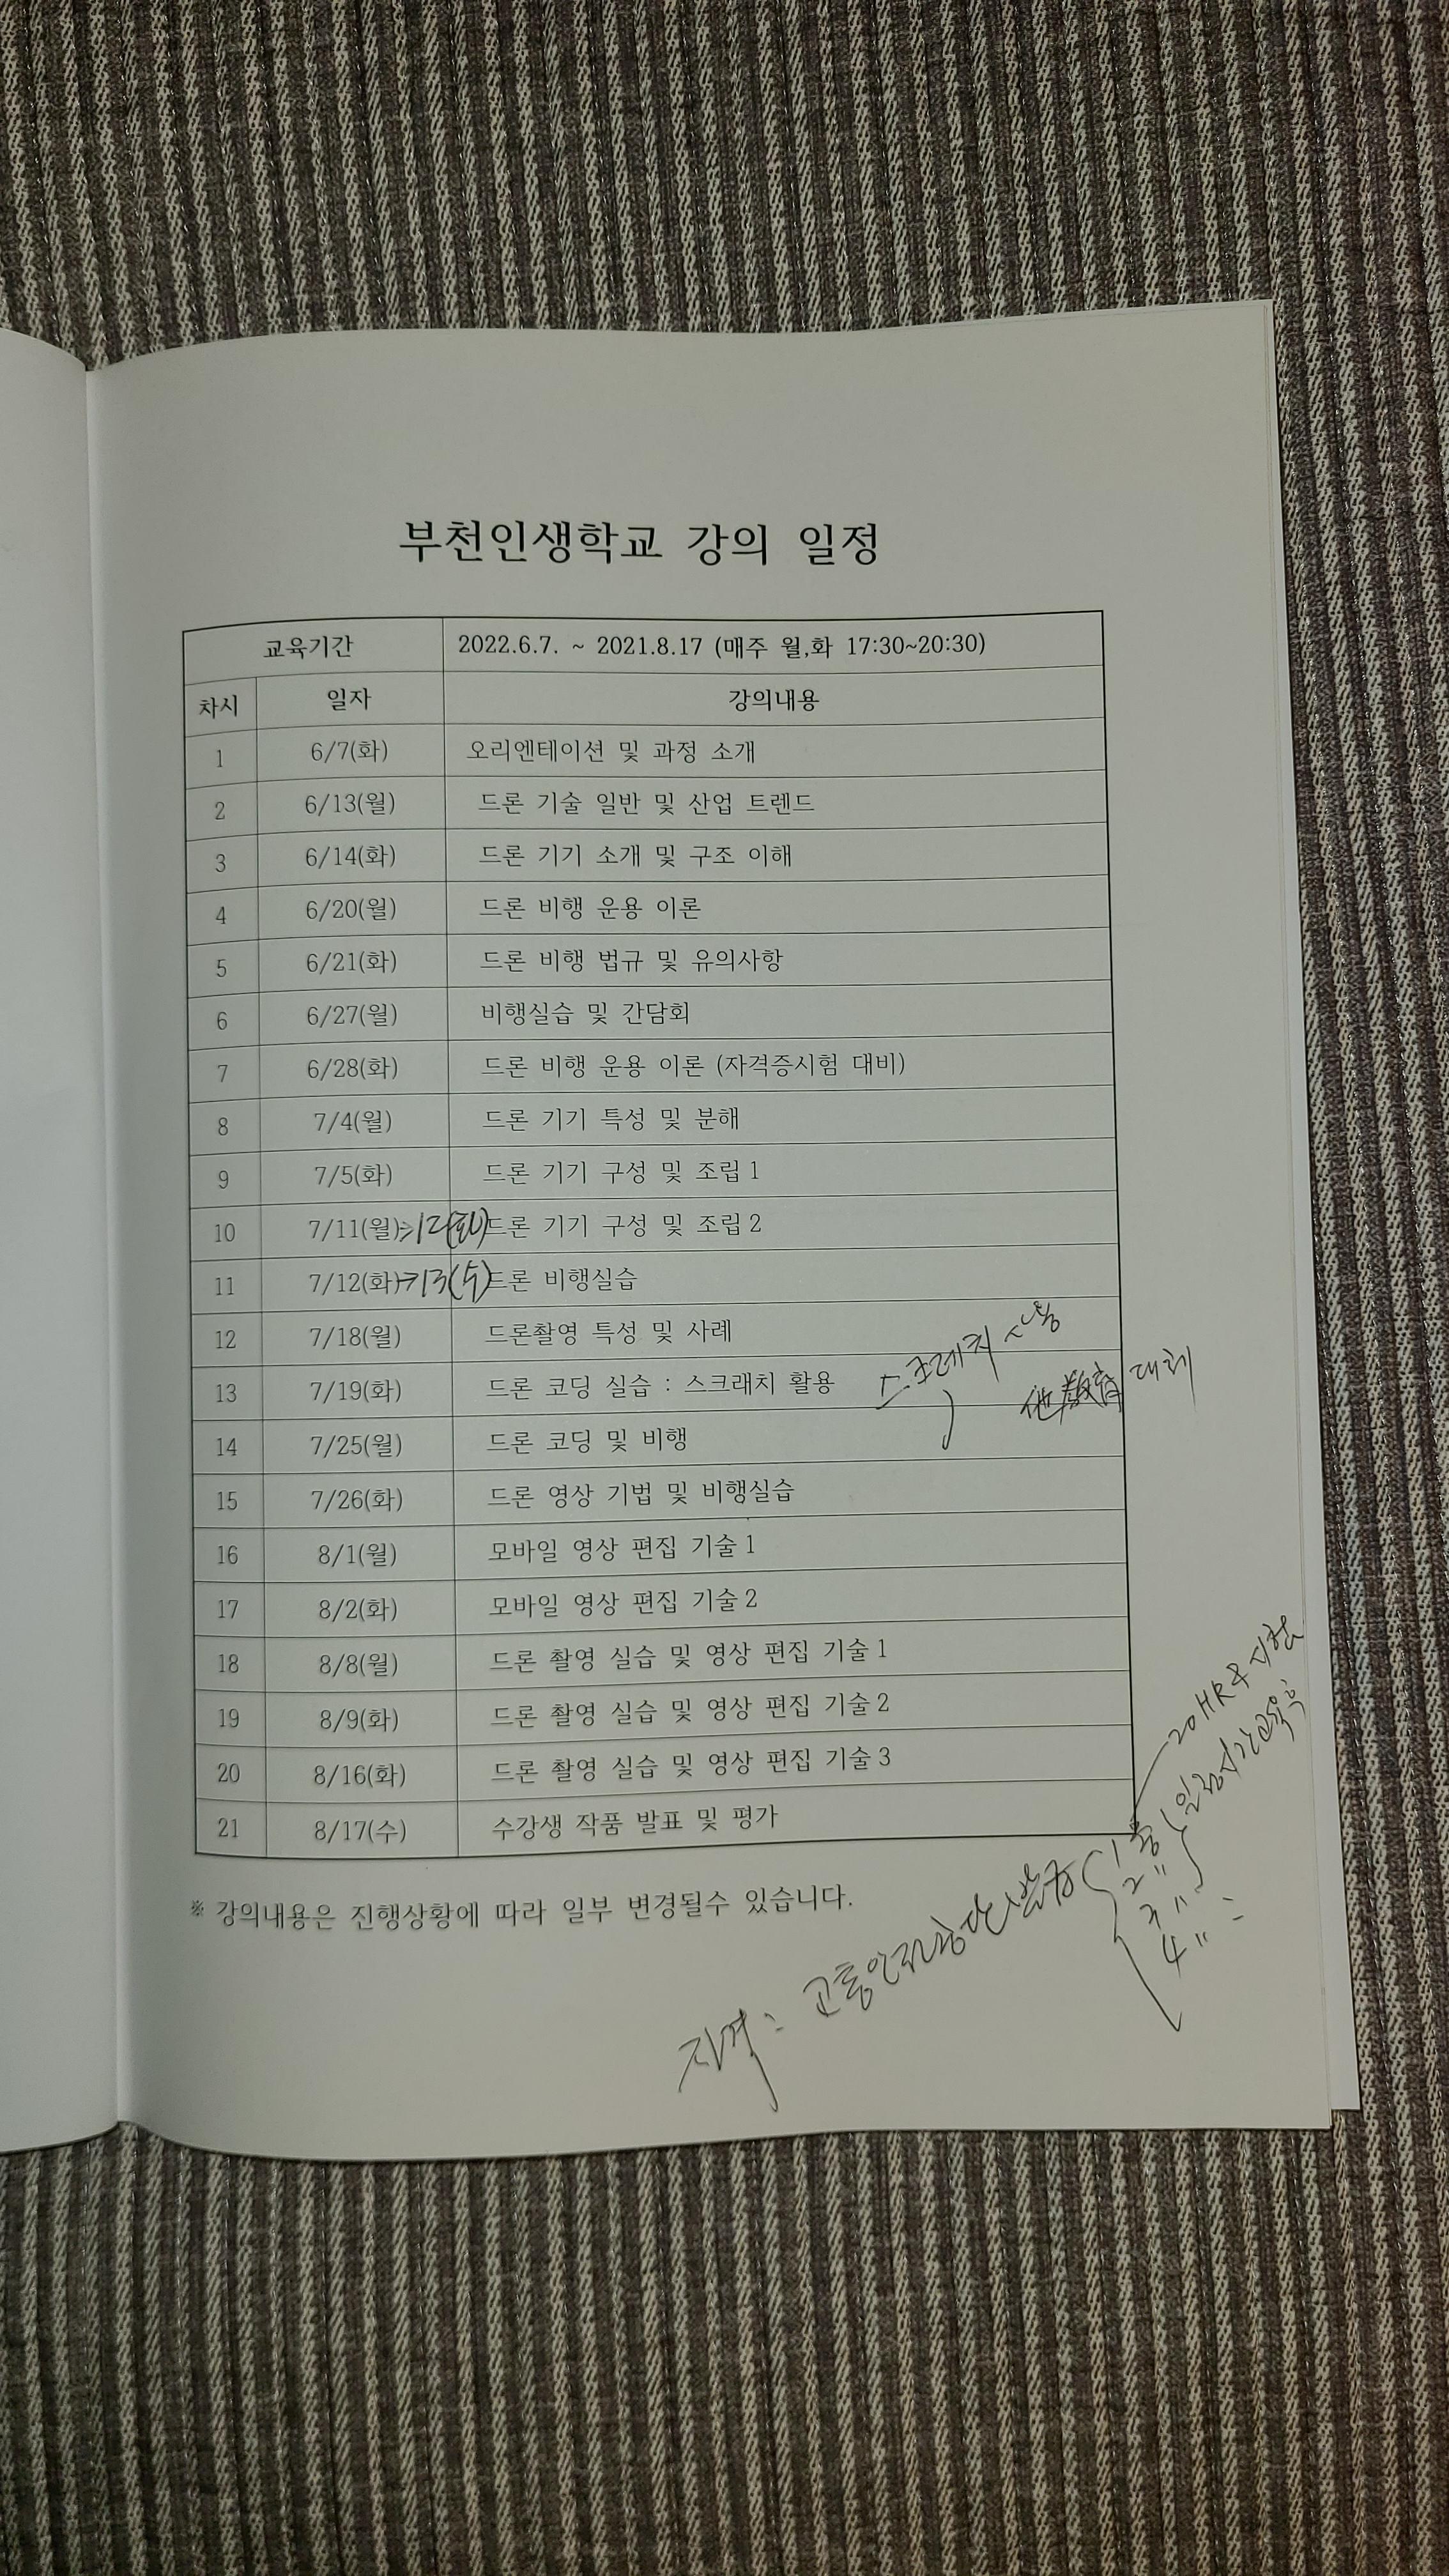 부천인생학교 강의 일정
교육기간 2022.6.7. ~ 2021.8.17 (매주 월,화 17:30~20:30)
차시 일자 강의내용
1 6/7(화) 오리엔테이션 및 과정 소개
2 6/13(월) 드론 기술 일반 및 산업 트렌드
3 6/14(화) 드론 기기 소개 및 구조 이해
4 6/20(월) 드론 비행 운용 이론
5 6/21(화) 드론 비행 법규 및 유의사항
6 6/27(월) 비행실습 및 간담회
7 6/28(화) 드론 비행 운용 이론 (자격증시험 대비)
8 7/4(월) 드론 기기 특성 및 분해
9 7/5(화) 드론 기기 구성 및 조립1
10 7/11(월)→12(화) 드론 기기 구성 및 조립2
11 7/12(화)→13(수) 드론 비행실습
12 7/18(월) 드론촬영 특성 및 사례
13 7/19(화) 드론 코딩 실습 : 스크래치 활용 스크레치 사용
他敎育 대체
14 7/25(월) 드론 코딩 및 비행
15 7/26(화) 드론 영상 기법 및 비행실습
16 8/1(월) 모바일 영상 편집 기술1
17 8/2(화) 모바일 영상 편집 기술2
18 8/8(월) 드론 촬영 실습 및 영상 편집 기술1
19 8/9(화) 드론 촬영 실습 및 영상 편집 기술2
20 8/16(화) 드론 촬영 실습 및 영상 편집 기술3
21 8/17(수) 수강생 작품 발표 및 평가
※ 강의내용은 진행상황에 따라 일부 변경될수 있습니다.
20HR
1종 일정시간교육후
2"
3"
4"
자격: 교통안전공단